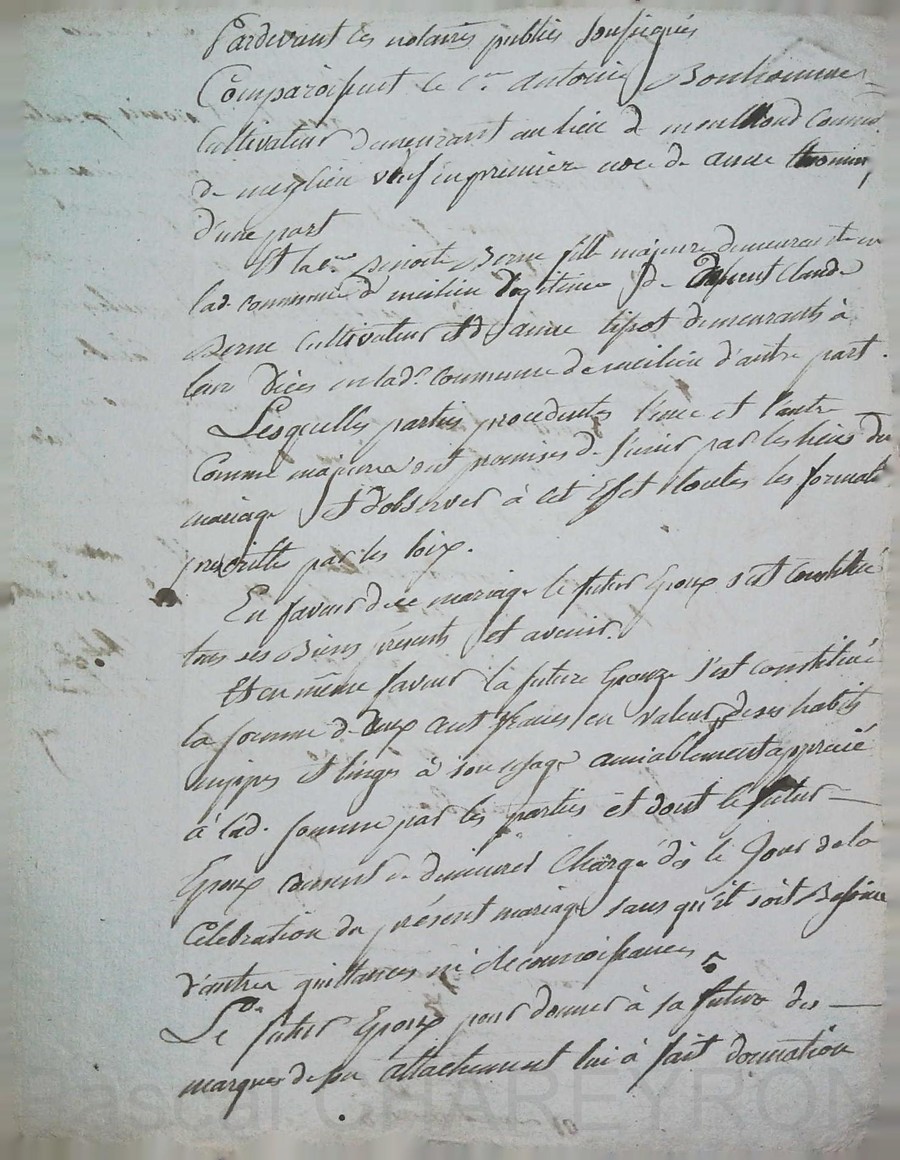 Pardevant les notaires publics soussignés
Comparoissent le c.en Antoine Bonhomme
Cultivateur demeurant au lieu de Commune
de meylieu veuf en premiere noce de anne
d'une part
Et la c.ne Benoite Berne fille majeure demeurante en
lad. commune de meilieu legitime de Claude
Berne Cultivateur et d'anne tipot demeurants à
en lad.e Commune de meilieu d'autre part.
Lesquelles parties procedentes l'une et l'autre
Comme majeures ont promises de s'unir par les liens du
mariage Et d'observer à cet Effet toutes les formalit
prescrittes par les loix.
En faveur de ce mariage le futur Epoux s'est constitué
tous ses Biens présents et avenir.
Et en même faveur la future Epouze s'est constitué
la somme de deux cent francs en valeur de ses habits
nippes et linges à son usage amiablement apprecié
à lad. somme par les parties et dont le futur
Epoux consent de demeurer Chargé dès le Jour de la
Celebration du présent mariage sans qu'il soit Besoin
d'autres quittances ni de connoissances
Le futur Epoux pour donner à sa future des
marques de son attachement lui à fait donnation
Pascal CHAREYRON